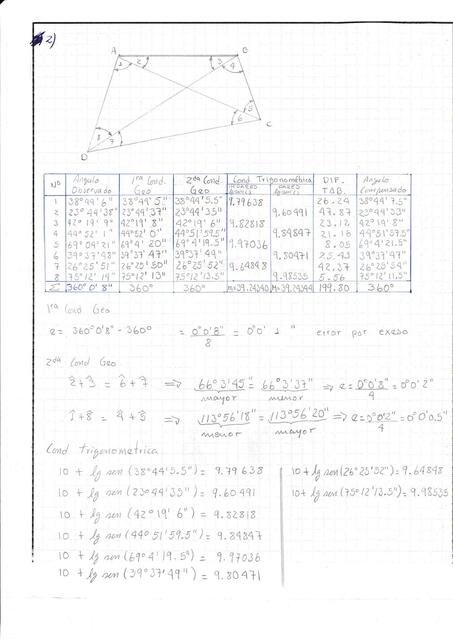 2)
A B
1 2 3 4
5
6 C
8
7
D
Nº Angulo Observado 1ra Cond. Geo 2da Cond. Geo Cond Trigonométrica IMPARES PARES DIF. TAB. Angulo Compensado
1 38°44'6" 38°44'5" 38°44'5.5" 9.79638 26.24 38°44'7.5"
2 23°44'38" 23°44'37" 23°44'35" 9.60491 47.87 23°44'33"
3 42°19'9" 42°19'8" 42°19'6" 9.82818 23.12 42°19'8"
4 44°52'1" 44°52'0" 44°51'59.5" 9.84847 21.16 44°51'57.5"
5 69°04'21" 69°4'20" 69°4'19.5" 9.97036 8.05 69°4'21.5"
6 39°37'48" 39°37'47" 39°37'49" 9.80471 25.43 39°37'47"
7 26°25'51" 26°25'50" 26°25'52" 9.64848 42.37 26°25'54"
8 75°12'14" 75°12'13" 75°12'13.5" 9.98535 5.56 75°12'11.5"
Σ 360°0'8" 360° 360° M=39.24340 M=39.24344 199.80 360°
1ra Cond Geo
e = 360°0'8" - 360° = 0°0'8" / 8 = 0°0' 1" error por exeso
2da Cond Geo
2̂+3̂ = 6̂+7̂ ⇒ 66°3'45" = 66°3'37" ⇒ e = 0°0'8" / 4 = 0°0'2"
mayor menor
1̂+8̂ = 4̂+5̂ ⇒ 113°56'18" = 113°56'20" ⇒ e = 0°0'2" / 4 = 0°0'0.5"
menor mayor
Cond Trigonometrica
10 + lg sen (38°44'5.5") = 9.79638 10 + lg sen (26°25'52") = 9.64848
10 + lg sen (23°44'35") = 9.60491 10 + lg sen (75°12'13.5") = 9.98535
10 + lg sen (42°19'6") = 9.82818
10 + lg sen (44°51'59.5") = 9.84847
10 + lg sen (69°4'19.5") = 9.97036
10 + lg sen (39°37'49") = 9.80471